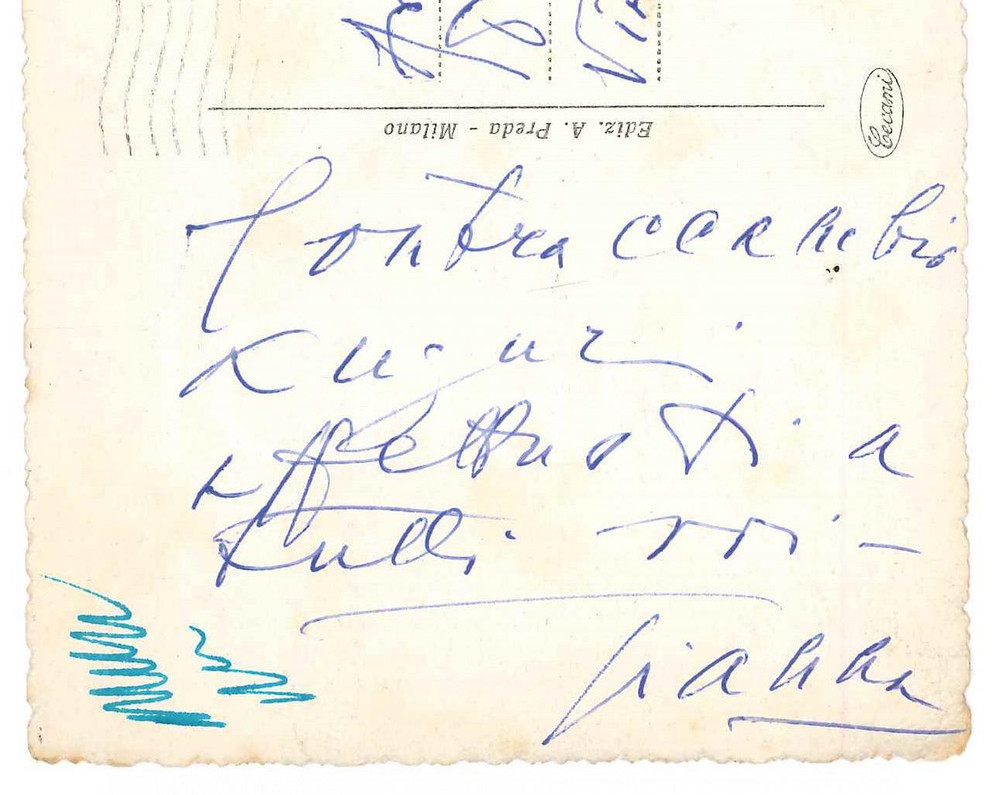 Ediz. A. Preda - Milano
Cecami
Contraccambio
Auguri
affettuosi a
tutti voi -
Gianna